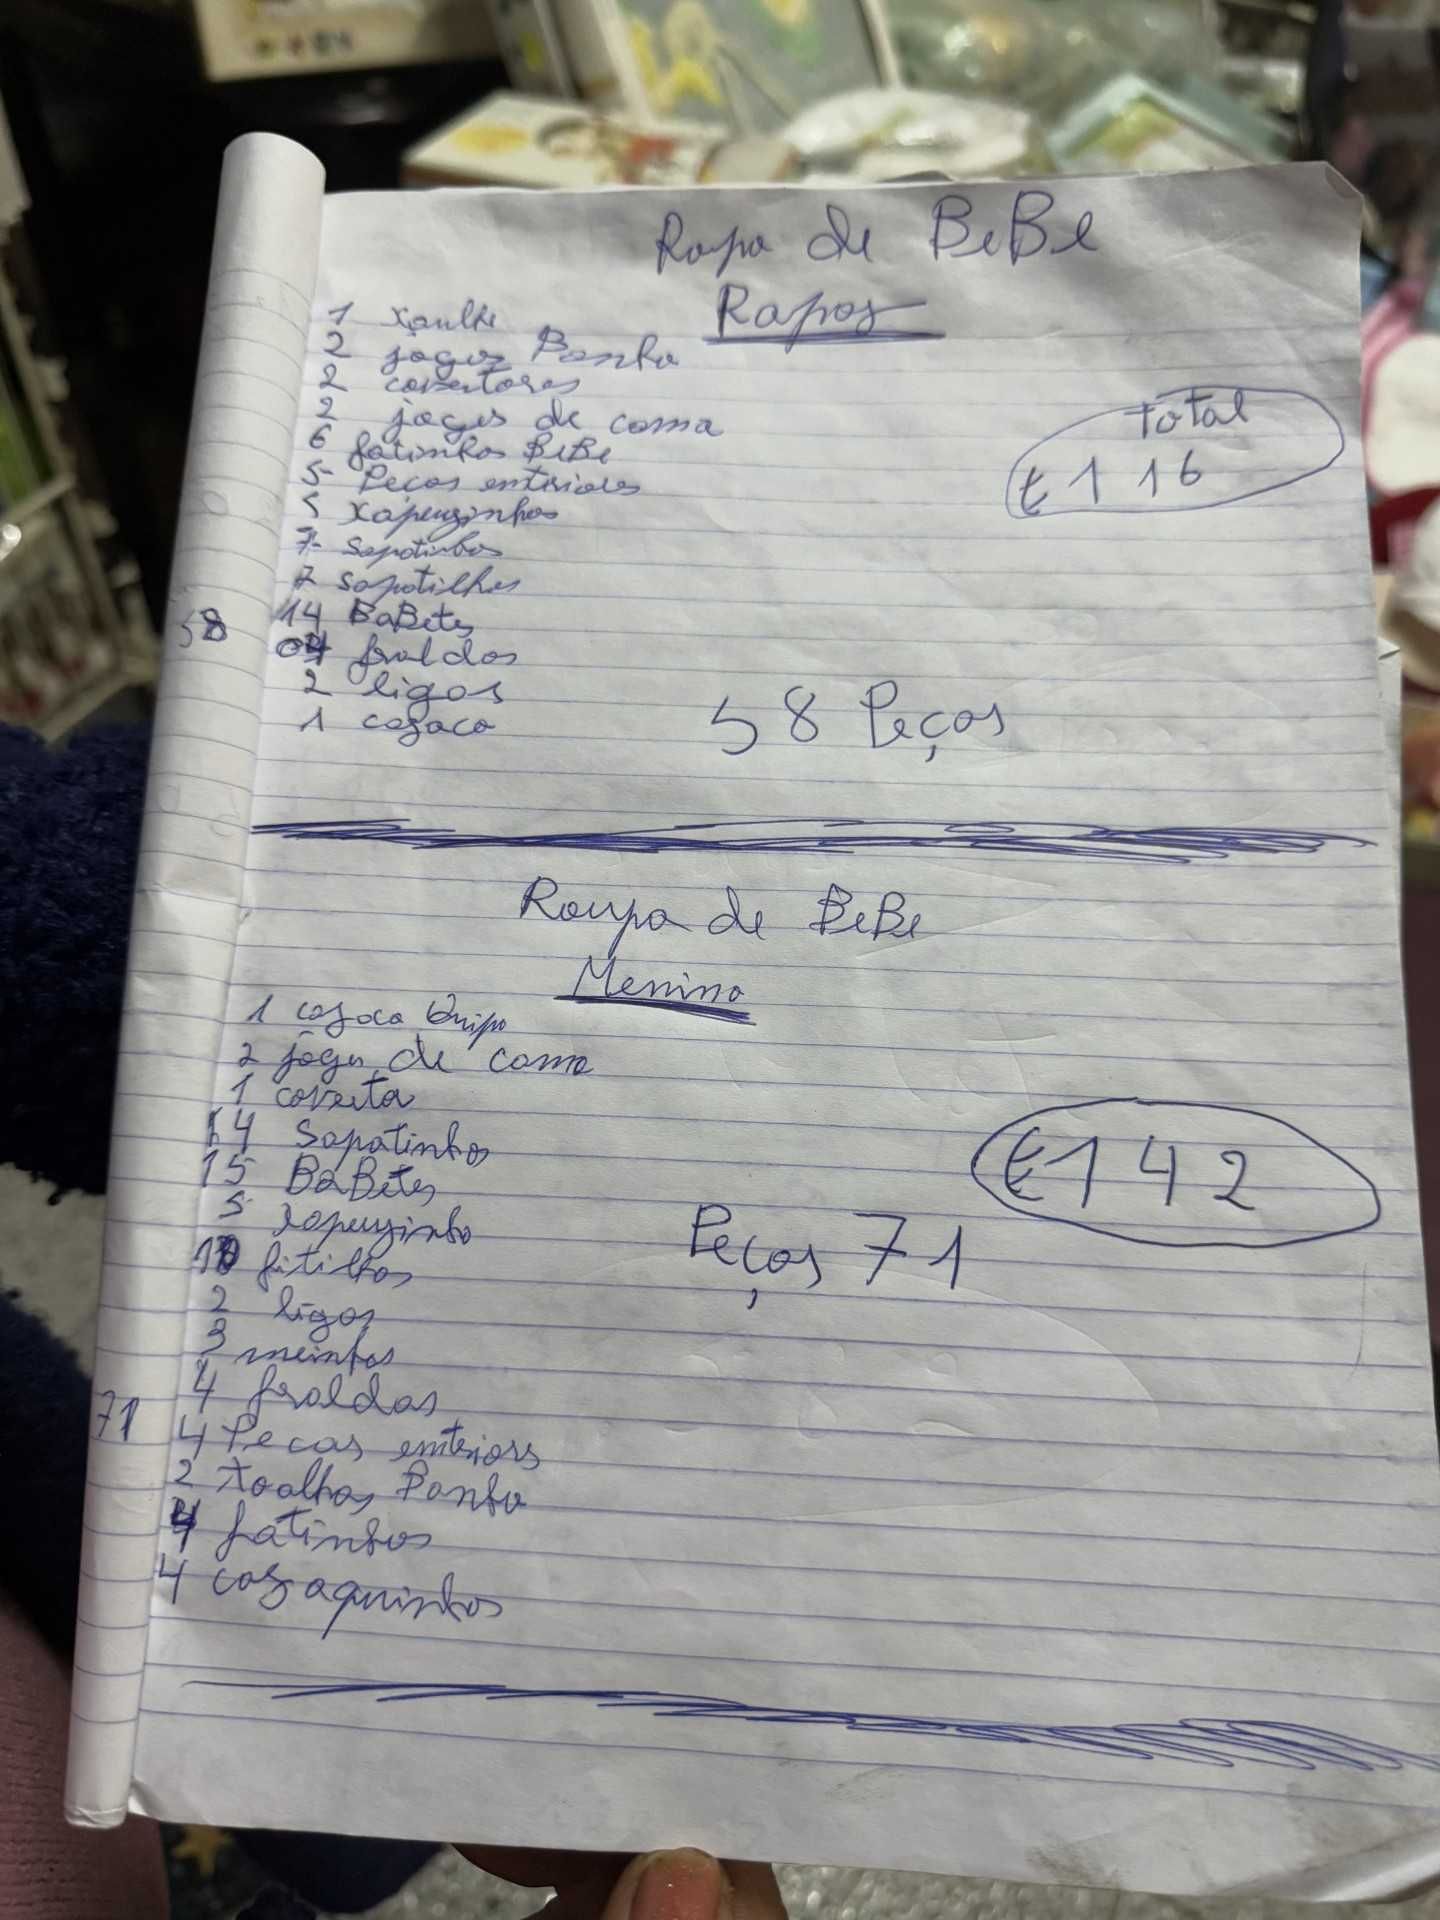 Ropa de BeBe
Rapas
1 xaulhe
2 jogos Banho
2 covertores
2 jogos de cama
6 fatinhos BeBe
5 Pecas enteriores
5 xapeuzinhos
7 Sapatinhos
7 sapatilhas
58
14 BaBetes
04 fraldas
2 ligas
1 casaco
Total
€ 116
58 Peças
Roupa de BeBe
Menina
1
2 jogos de cama
1 coverta
14 Sapatinhos
15 BaBetes
5 xapeuzinho
10 fitilhos
2 ligas
3 meinhas
71
4 fraldas
4 Pecas enteriors
2 toalhas Banho
4 fatinhos
4 casaquinhos
€142
Peças 71